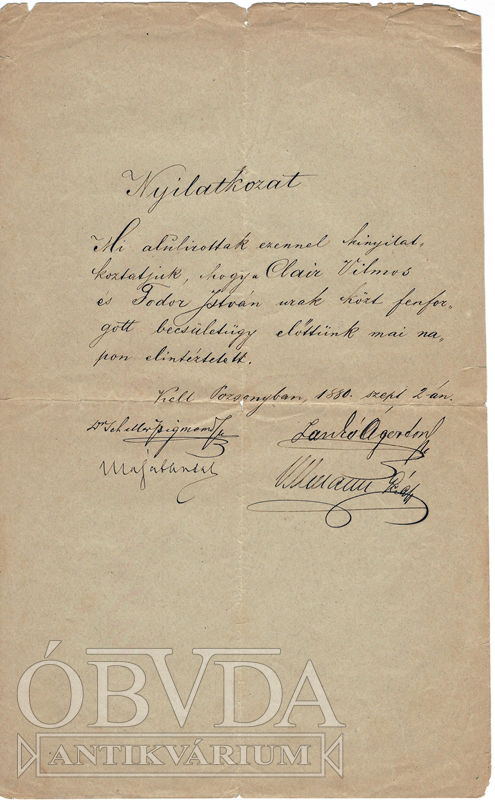 Nyilatkozat
Mi alulirottak ezennel kinyilat-
koztatjuk, hogy Clair Vilmos
és Fodor István urak közt fenfor-
gott becsületügy előttünk mai na-
pon elintéztetett.
Kelt Pozsonyban, 1880. szept 2-án.
Dr
ÓBVDA
ANTIKVÁRIUM